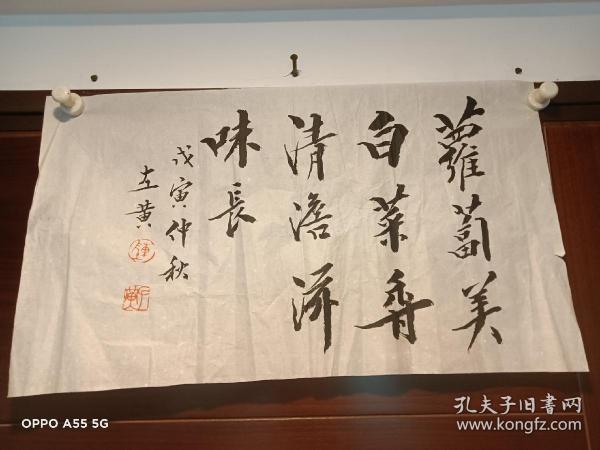 蘿蔔美
白菜香
清澹济
味長
戊寅仲秋
左黄
OPPO A55 5G
孔夫子旧書网
www.kongfz.com